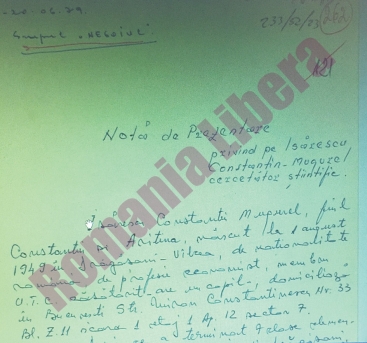 233/52/83 262
Grupul "NEGOIUL"
121
Notă de Prezentare
privind pe Isărescu
Constantin-Mugurel
cercetător științific.
Isărescu Constantin Mugurel, fiul
Constantin și Aritina, născut la 1 august
1949 în Drăgășani-Vîlcea, de naționalitate
română, de profesie economist, membru
U.T.C. căsătorit-are un copil, domiciliază
în București Str. Miron Constantinescu Nr. 33
Bl. Z.11 scara 1 etaj 1 Ap. 12 sector 7.
a terminat clase elemen-
Romania Libera